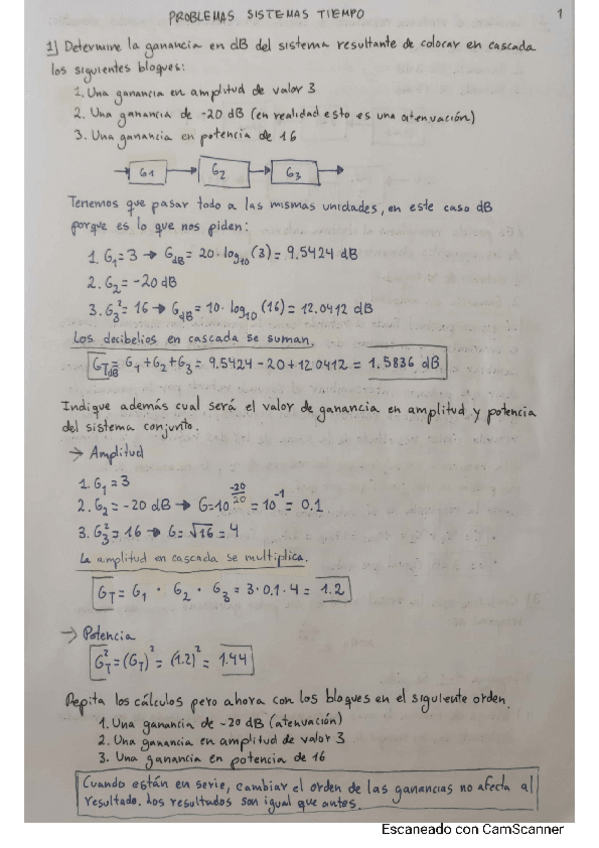 PROBLEMAS SISTEMAS TIEMPO
1
1) Determine la ganancia en dB del sistema resultante de colocar en cascada
los siguientes bloques:
1. Una ganancia en amplitud de valor 3
2. Una ganancia de -20 dB (en realidad esto es una atenuación)
3. Una ganancia en potencia de 16
G1 G2 G3
Tenemos que pasar todo a las mismas unidades, en este caso dB
porque es lo que nos piden:
1. G₁=3 → G_dB = 20·log₁₀(3) = 9.5424 dB
2. G₂ = -20 dB
3. G₃² = 16 → G_dB = 10·log₁₀(16) = 12.0412 dB
Los decibelios en cascada se suman.
G_TdB = G₁+G₂+G₃ = 9.5424-20+12.0412 = 1.5836 dB
Indique además cual será el valor de ganancia en amplitud y potencia
del sistema conjunto.
→ Amplitud
1. G₁=3
2. G₂ = -20 dB → G=10^(-20/20) = 10⁻¹ = 0.1
3. G₃² = 16 → G = √16 = 4
La amplitud en cascada se multiplica.
G_T = G₁ · G₂ · G₃ = 3·0.1·4 = 1.2
→ Potencia
G_T² = (G_T)² = (1.2)² = 1.44
Repita los cálculos pero ahora con los bloques en el siguiente orden.
1. Una ganancia de -20 dB (atenuación)
2. Una ganancia en amplitud de valor 3
3. Una ganancia en potencia de 16
Cuando están en serie, cambiar el orden de las ganancias no afecta al
resultado. Los resultados son igual que antes.
Escaneado con CamScanner